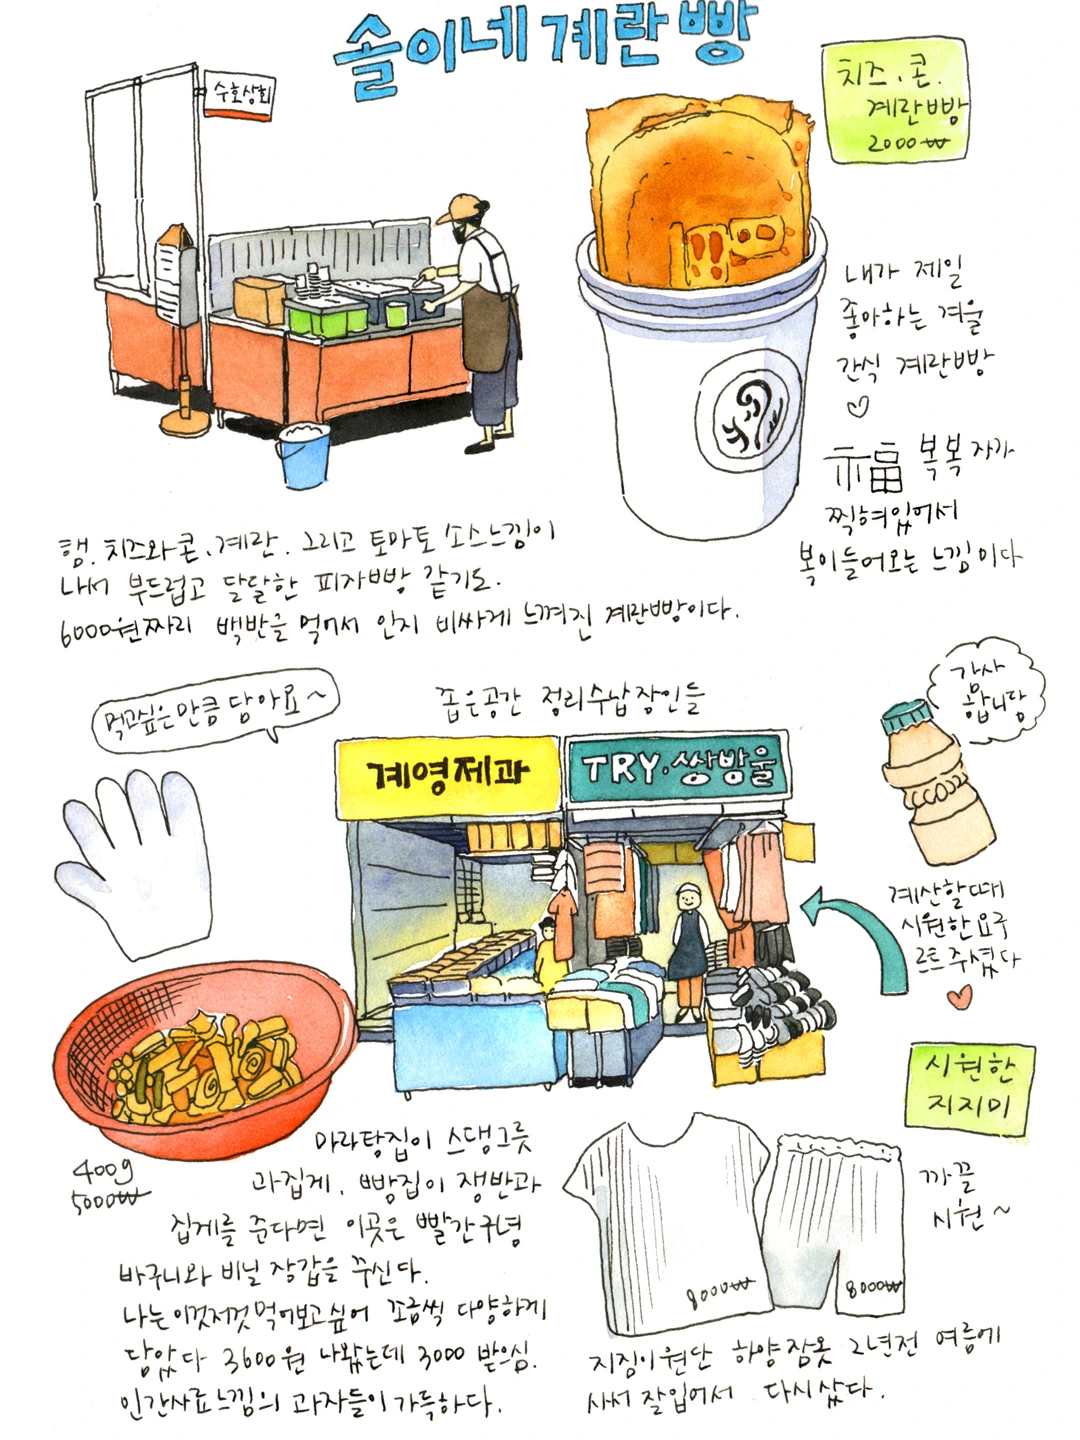 솔이네 계란빵
수호상회
치즈.콘.
계란빵
2000₩
내가 제일
좋아하는 겨울
간식 계란빵
福 복복자가
찍혀있어서
복이들어오는 느낌이다
햄.치즈와콘.계란.그리고 토마토 소스느낌이
나서 부드럽고 달달한 피자빵 같기도.
6000원짜리 백반을 먹어서 인지 비싸게 느껴진 계란빵이다.
먹고싶은만큼 담아요~
좁은공간 정리수납장인들
계영제과
TRY.쌍방울
감사
합니당
계산할때
시원한요구
르트 주셨다
400g
5000₩
마라탕집이 스댕그릇
과집게. 빵집이 쟁반과
집게를 준다면 이곳은 빨간구녕
바구니와 비닐 장갑을 주신다.
나는이것저것먹어보고싶어 조금씩 다양하게
담았다 3600원 나왔는데 3000 받으심.
인간사료느낌의 과자들이가득하다.
시원한
지지미
까끌
시원~
8000₩
8000₩
지짐이원단 하얀잠옷 2년전 여름에
사서 잘입어서 다시샀다.